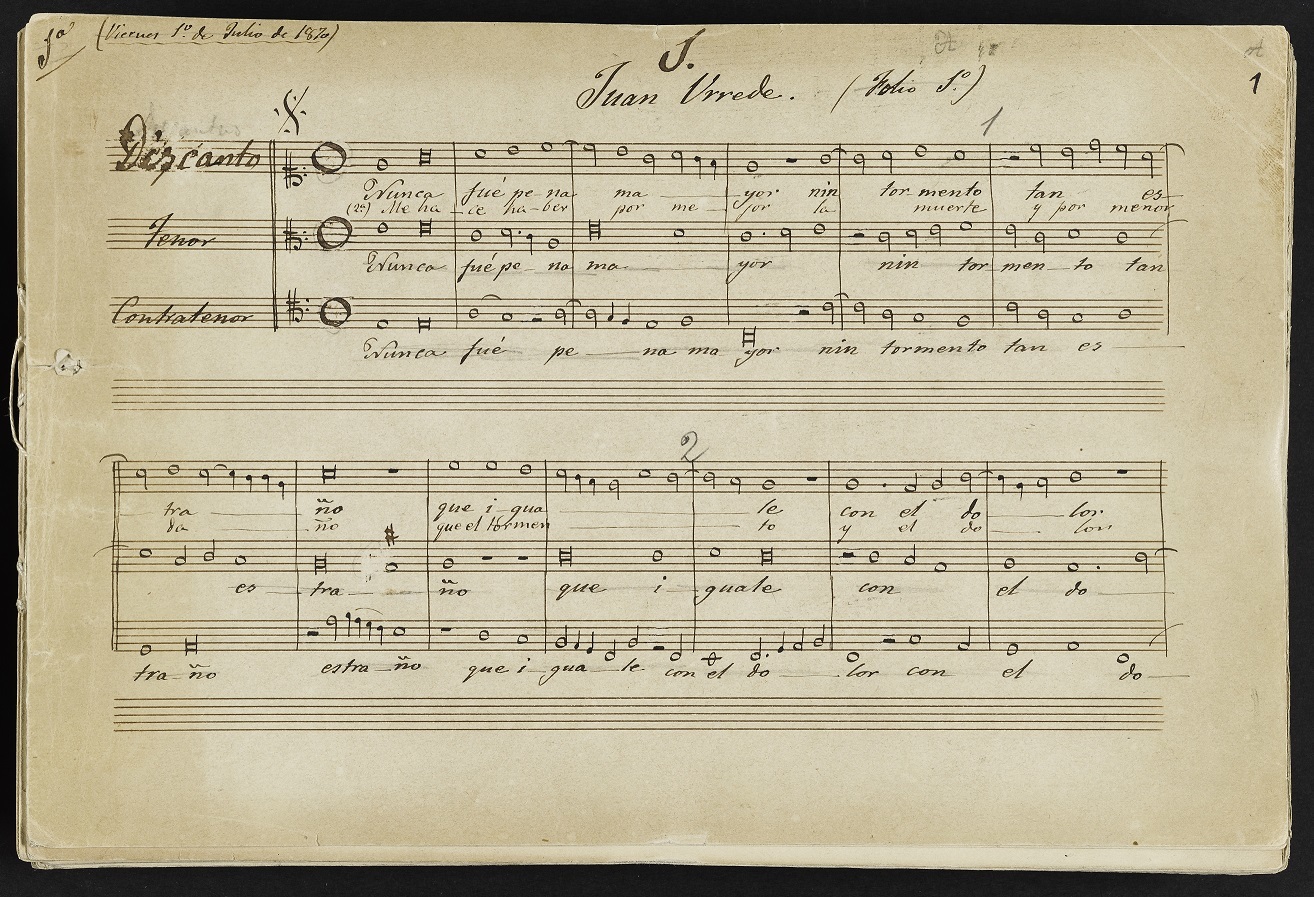 1º (Viernes 1º de Julio de 1870)
1.
Juan Urrede. (Folio 1º)
1
1
Descanto
Nunca fué pe-na ma yor nin tormento tan es
(2º) Me ha ce ha-ber por me jor la muerte y por menor
Tenor
Nunca fué pe-na ma yor nin tor men-to tan
Contratenor
Nunca fué pe na ma yor nin tormento tan es
2
tra ño que i gua le con el do lor
da ño que el tormen to y el do lor
es tra ño que i guale con el do
tra ño estra ño que i gua le con el do lor con el do